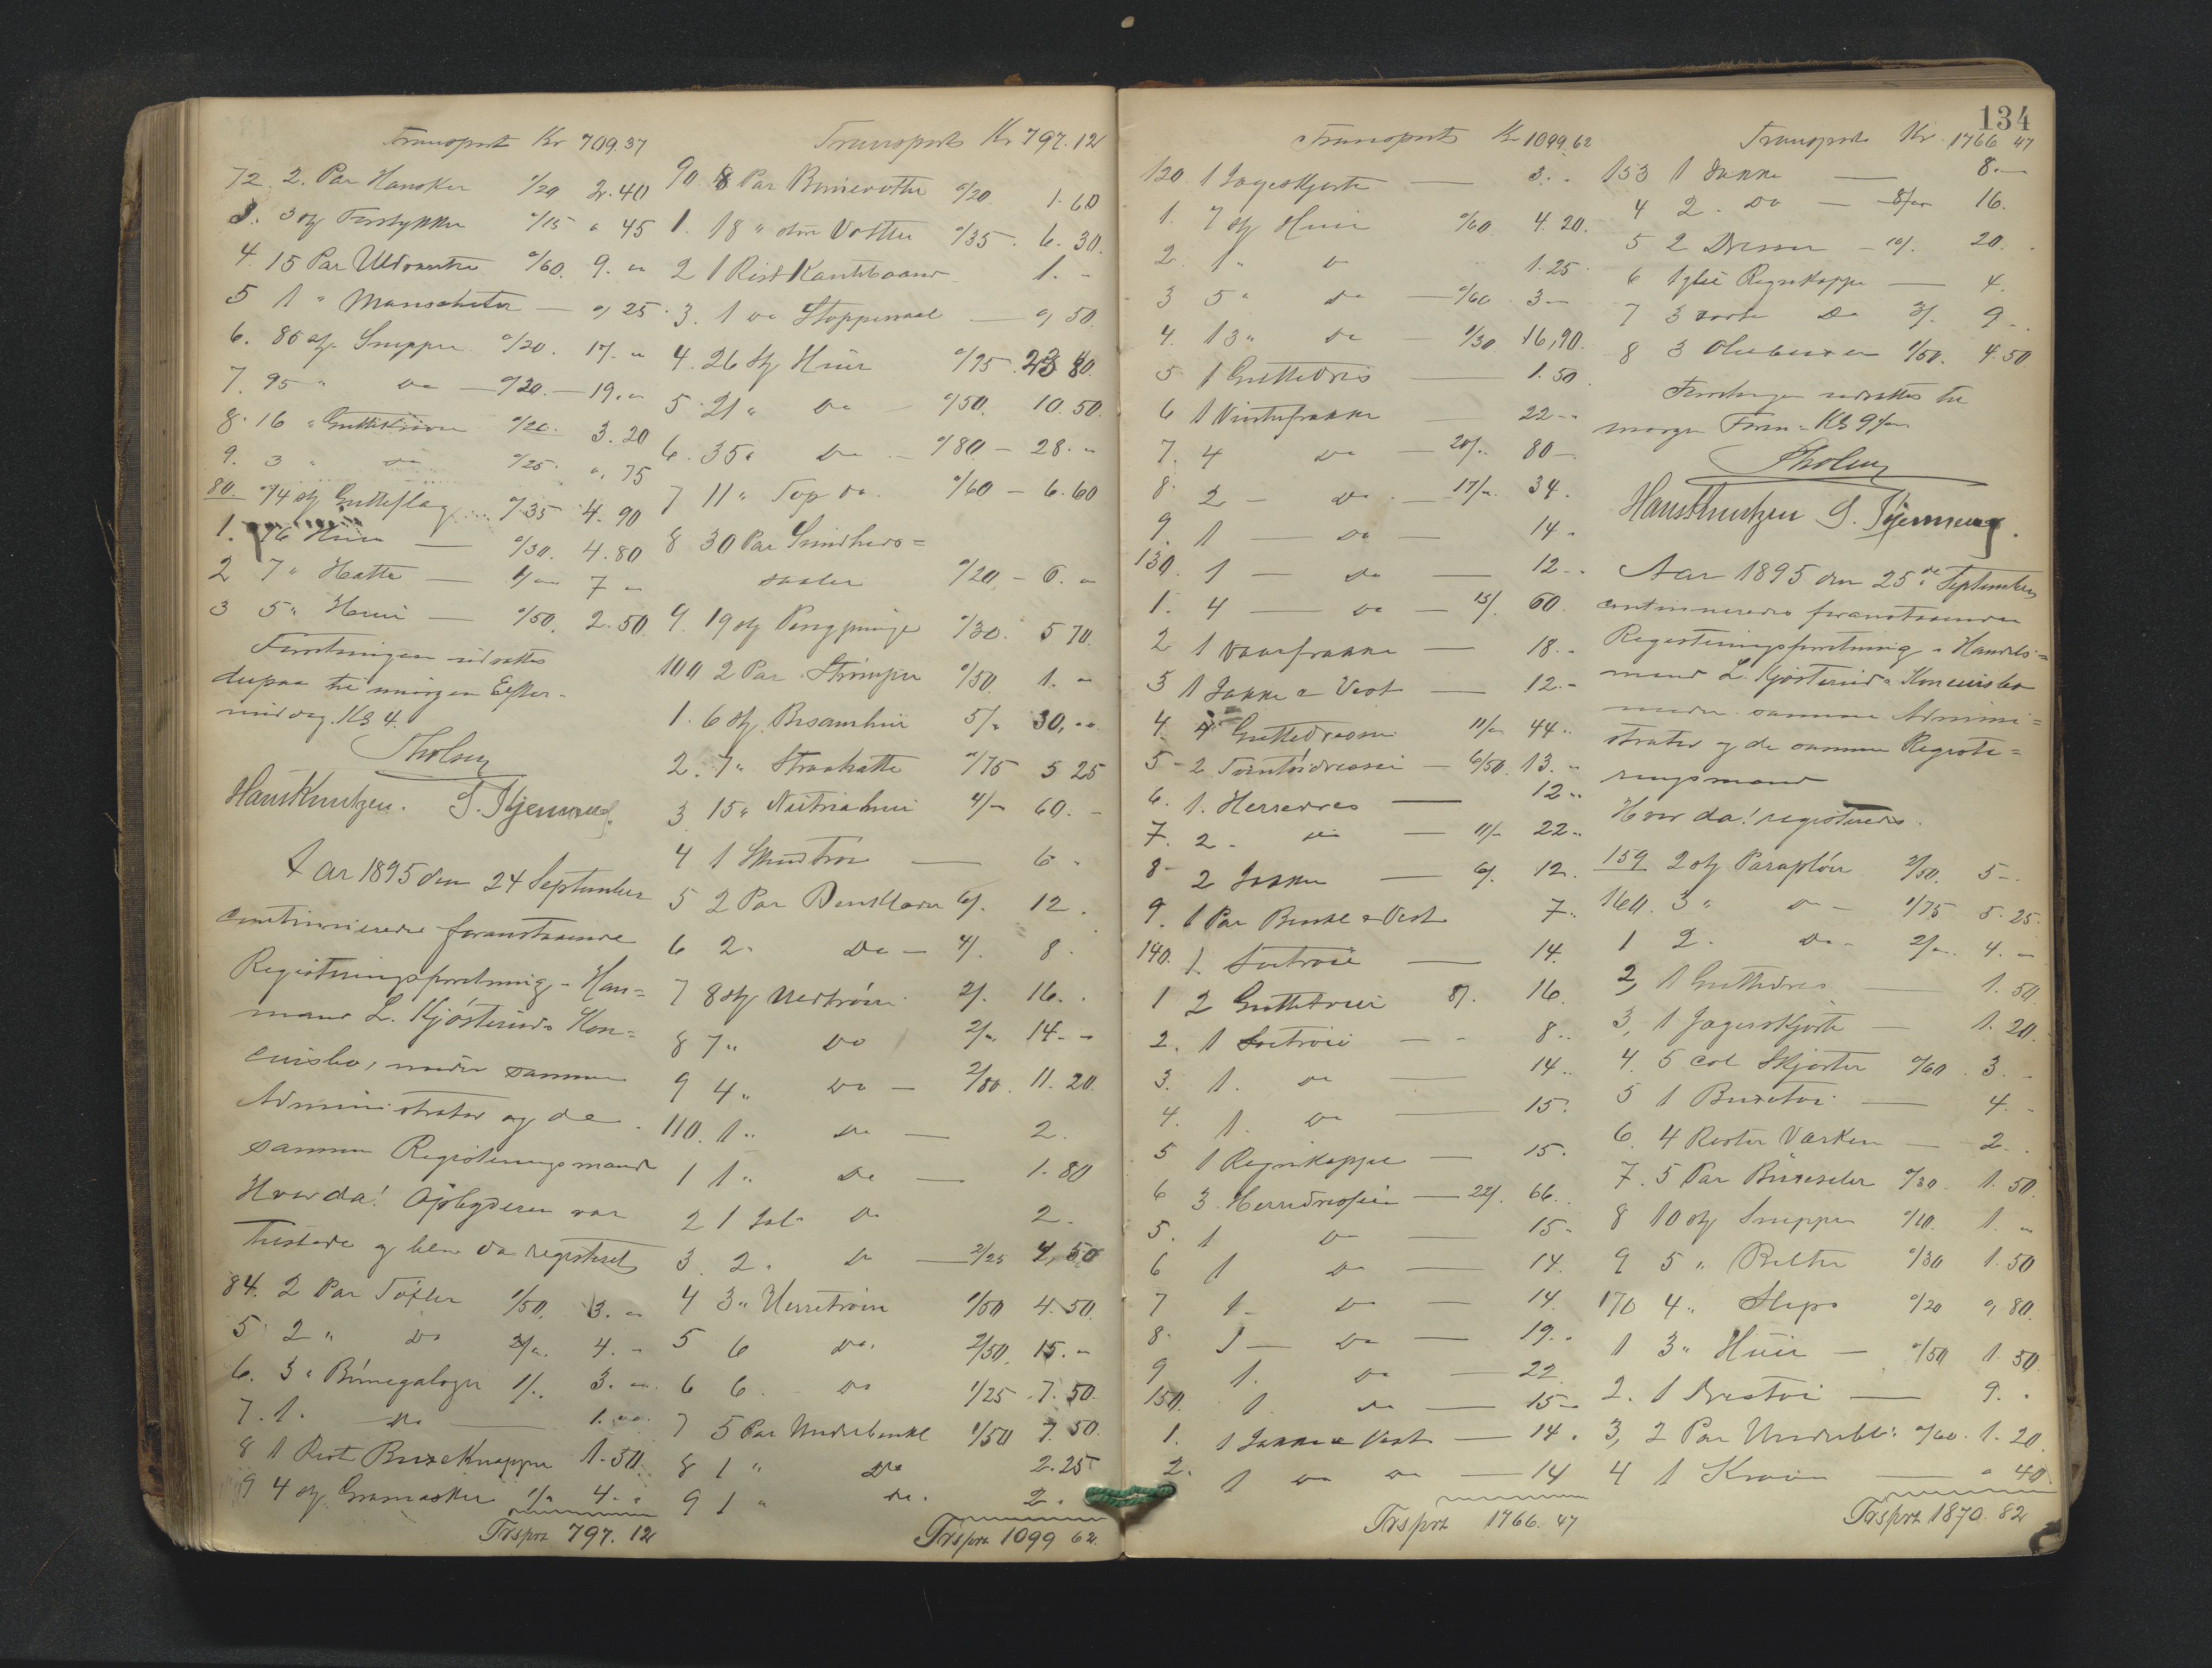 Transport Kr 709.37
72. 2. Par Hansker 0/20 2.40
3. 3 stk Forstykker 0/15 " 45
4. 15 Par Uldvanter 0/60. 9. "
5 1 " Manschetter — " 25
6. 85 stk Snipper 0/20. 17. "
7. 95 " Do — 0/20. — 19. "
8. 16 " 0/20. 3.20
9. 3 " Do 0/25. " 75
80. 14 stk Gutteflag 0/35 4.90
1. 16 Huer — 0/30. 4.80
2 7 " Hatte — 1/" 7 "
3 5 " Huer — 0/50. 2.50.
Forretningen udsattes
derpaa til imorgen Efter-
middag Kl 4.
Tholsen
Hans Knutzen. S. Tjernaug.
Aar 1895 den 24 September
continueredes foranstaaende
Registeringsforretning i Han=
mand L. Kjøsteruds Kon=
cursbo, under samme
Administrator og de
samme Registeringsmænd
Hvorda! Opbyderen var
tilstede og blev da registeret
84. 2 Par Tøfler 1/50. 3. "
5 2 " Do 2/". 4. "
6. 3 " 1/". 3. "
7. 1. Do — 1. "
8 1 Rest Buxeknapper 1.50.
9 4 stk Gramasker 1/" 4. "
Trsprt 797.12
Transport Kr 797.12
90 8 Par 0/20. 1.60
1. 18 " stor Votter 0/35. 6.30.
2 1 Rest Kantebaand 1. -
3. 1 do Stoppenaal — " 50.
4. 26 stk Huer 0/95. 23 80.
5. 21 " Do 0/50. 10.50.
6. 35 " Do — 0/80 — 28. "
7 11 " Top do. 0/60 — 6.60
8 30 Par
saaler 0/20. — 6. "
9. 19 stk Pengpunge 0/30. 5 70.
100 2 Par Strømper 0/50. 1. "
1. 6 stk. Bisamhuer 5/" 30. "
2. 7 " Straahatte 0/75 5 25
3 15 " Nutriahuer 4/" 60. -
4 1 — 6 -
5 2 Par Benklæder 6/. 12.
6 2 " Do — 4/. 8.
7 8 stk 2/. 16. .
8 7 " Do 2/". 14. -
9 4 " Do — 2/80. 11.20.
110. 1 " Do — 2.
1 1 " Do — 1.80
2 1 do 2.
3. 2. Do — 2/25 4,50
4 3 " Herretrøier 1/50 4.50.
5 6 do. 2/50. 15. "
6 6. do 1/25. 7.50.
7 5 Par Underbenkl 1/50 7.50.
8 1 " Do 2.25
9 1 " do. 2.
Trsprt 1099 62.
134
Transport Kr 1099.62
120 1 Jageskjorte — 3. -
1. 7 stk Huer 0/60. 4.20.
2. 1 " Do 1.25
3 5 " do — 0/60 3 —
4. 13 " do — 1/30 16,90.
5 1 Guttedres — 1.50.
6 1 Vinterfrakke — 22 -
7. 4 do — 20/" 80 —
8. 2 — do. — 17/" 34.
9. 1 — do — 14 -
130. 1 — do — 12 -
1. 4 — do — 15/. 60.
2 1 Vaarfrakke — 18. -
3 1 Jakke & Vest — 12. -
4. 4 Guttedresser 11/" 44 "
5 - 2 — 6/50. 13. "
6. 1. Herredres — 12 "
7. 2. do — 11/" 22 "
8 - 2 Jakker — 6/. 12.
9. 1 Par Benkl & Vest 7 "
140. 1. — 14.
1 2 Guttetrøier 8/. 16.
2. 1 — 8 "
3. 1. do — 14 "
4. 1. do — 15.
5 1 Regnkappe — 15.
6 3 Herredresser — 22/. 66.
5. 1 Do — 15 -
6 1 do — 14.
7 1 - do — 14.
8. 1 — do — 19. -
9 1. do — 22.
150. 1. do — 15 —
1. 1 Jakke & Vest — 14.
2. 1 do do — 14
Trsprt 1766.47
Transport Kr. 1766 47
153 1 Jakke — 8. —
4 2. do — 8/" 16.
5 2 Dresser — 10/. 20.
6 1 Regnkappe — 4.
7 3 sorte Do 3/. 9 -
8 3 1/50. 4.50
Forretningen udsattes til
morgen Form. Kl 9
Tholsen
Hans Knutzen S. Tjernaug.
Aar 1895 den 25de September
continueredes foranstaaende
Registeringsforretning i Handels=
mand L. Kjøsteruds Koncursbo
under samme Admini=
strator og de samme Registe=
ringsmænd
Hvor da! registeredes.
159 2 stk Parapløier 2/50. 5 -.
160. 3 " do — 1/75 5.25.
1 2. do - 2/" 4. —
2, 1 Guttedres — 1.50.
3, 1 Jagerskjorte — 1.20.
4. 5 col Skjorter 0/60. 3. -
5 1 Buxetøi — 4. -
6. 4 Rester Værken — 2. .
7. 5 Par Buxeseler 0/30. 1.50.
8 10 stk Snipper 0/10. 1. "
9 5 " Belter 0/30 1.50
170 4 " Slips 0/20 " 80.
1 3 " Huer — 0/50 1.50.
2. 1 — 9. "
3, 2 Par Underbkl: 0/60. 1.20.
4 1 — " 40
Trsprt 1870.82